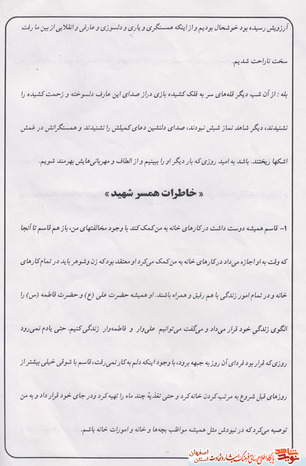 آرزویش رسیده بود خوشحال بودیم و از اینکه همسنگری و یاری و دلسوزی و عارفی و انقلابی از بین ما رفت
سخت ناراحت شدیم.
بله : از آن شب دیگر قله‌های سر به فلک کشیده بازی دراز صدای این عارف دلسوخته و زحمت کشیده را
نشنیدند، دیگر شاهد نماز شبش نبودند، صدای دلنشین دعای کمیلش را نشنیدند و همسنگرانش در غمش
اشکها ریختند. باشد به امید روزی که بار دیگر او را ببینیم و از الطاف و مهربانی‌هایش بهرمند شویم.
« خاطرات همسر شهید »
۱- قاسم همیشه دوست داشت در کارهای خانه به من کمک کند با وجود مخالفتهای من، باز هم قاسم تا آنجا
که وقت به او اجازه می‌داد در کارهای خانه به من کمک می‌کرد او معتقد بود که زن و شوهر باید در تمام کارهای
خانه و در تمام امور زندگی با هم رفیق و همراه باشند. او همیشه حضرت علی (ع) و حضرت فاطمه (س) را
الگوی زندگی خود قرار می‌داد و می‌گفت می‌توانیم. علی‌وار و فاطمه‌وار زندگی کنیم. حتی یادم نمی‌رود
روزی که قرار بود فردای آن روز به جبهه برود، با وجود اینکه دلم به کار نمی‌رفت، قاسم با شوقی خیلی بیشتر از
روزهای قبل شروع به مرتب کردن خانه کرد و حتی تغذیهٔ چند ماه را تهیه کرد و در جای خود قرار داد و به من
توصیه می‌کرد که در نبودش مثل همیشه مواظب بچه‌ها و خانه و امورات خانه باشم.
اصفهان